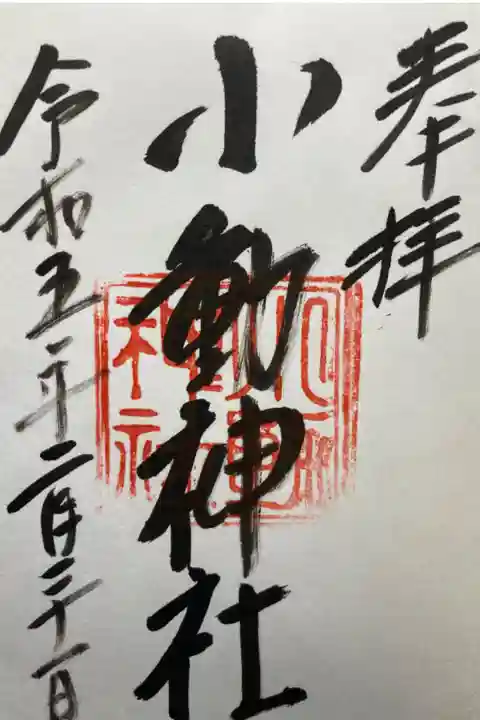 奉拝
小動神社
令和五年二月二十一日